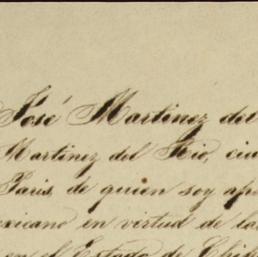 José Martinez del
Martinez del Rio, ciu
Paris, de quien soy apo
exicano en virtud de la
en el Estado de Chih